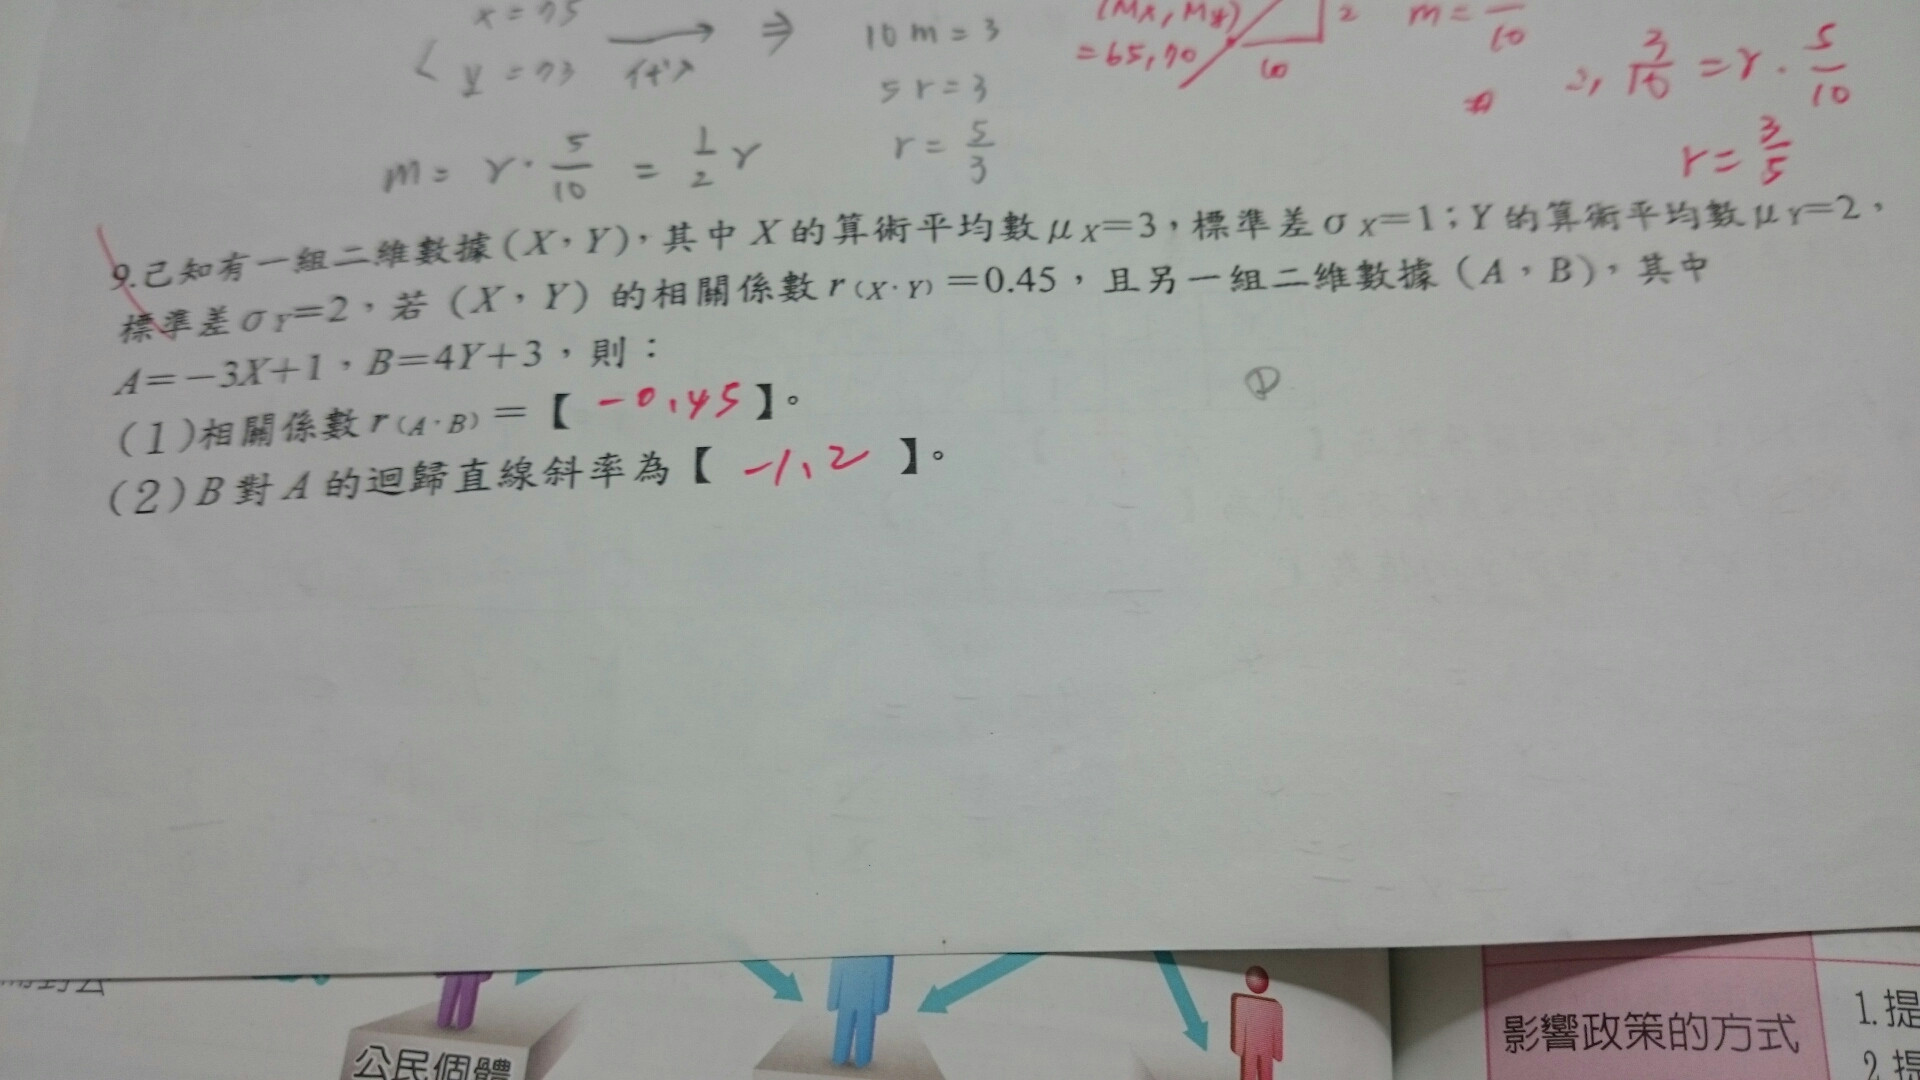 x = 75
y = 73 代入 ⇒
10m = 3
5r = 3
r = 5/3
m = r · 5/10 = 1/2 r
(Mx, My)
= 65, 70
2
10
m = /10
∴ 3/10 = r · 5/10
r = 3/5
9.已知有一組二維數據(X,Y),其中X的算術平均數μX=3,標準差σX=1;Y的算術平均數μY=2,
標準差σY=2,若(X,Y)的相關係數r(X·Y)=0.45,且另一組二維數據(A,B),其中
A=-3X+1,B=4Y+3,則:
(1)相關係數r(A·B)=【 -0.45 】。
(2)B對A的迴歸直線斜率為【 -1.2 】。
公民個體
影響政策的方式
1.提
2.提